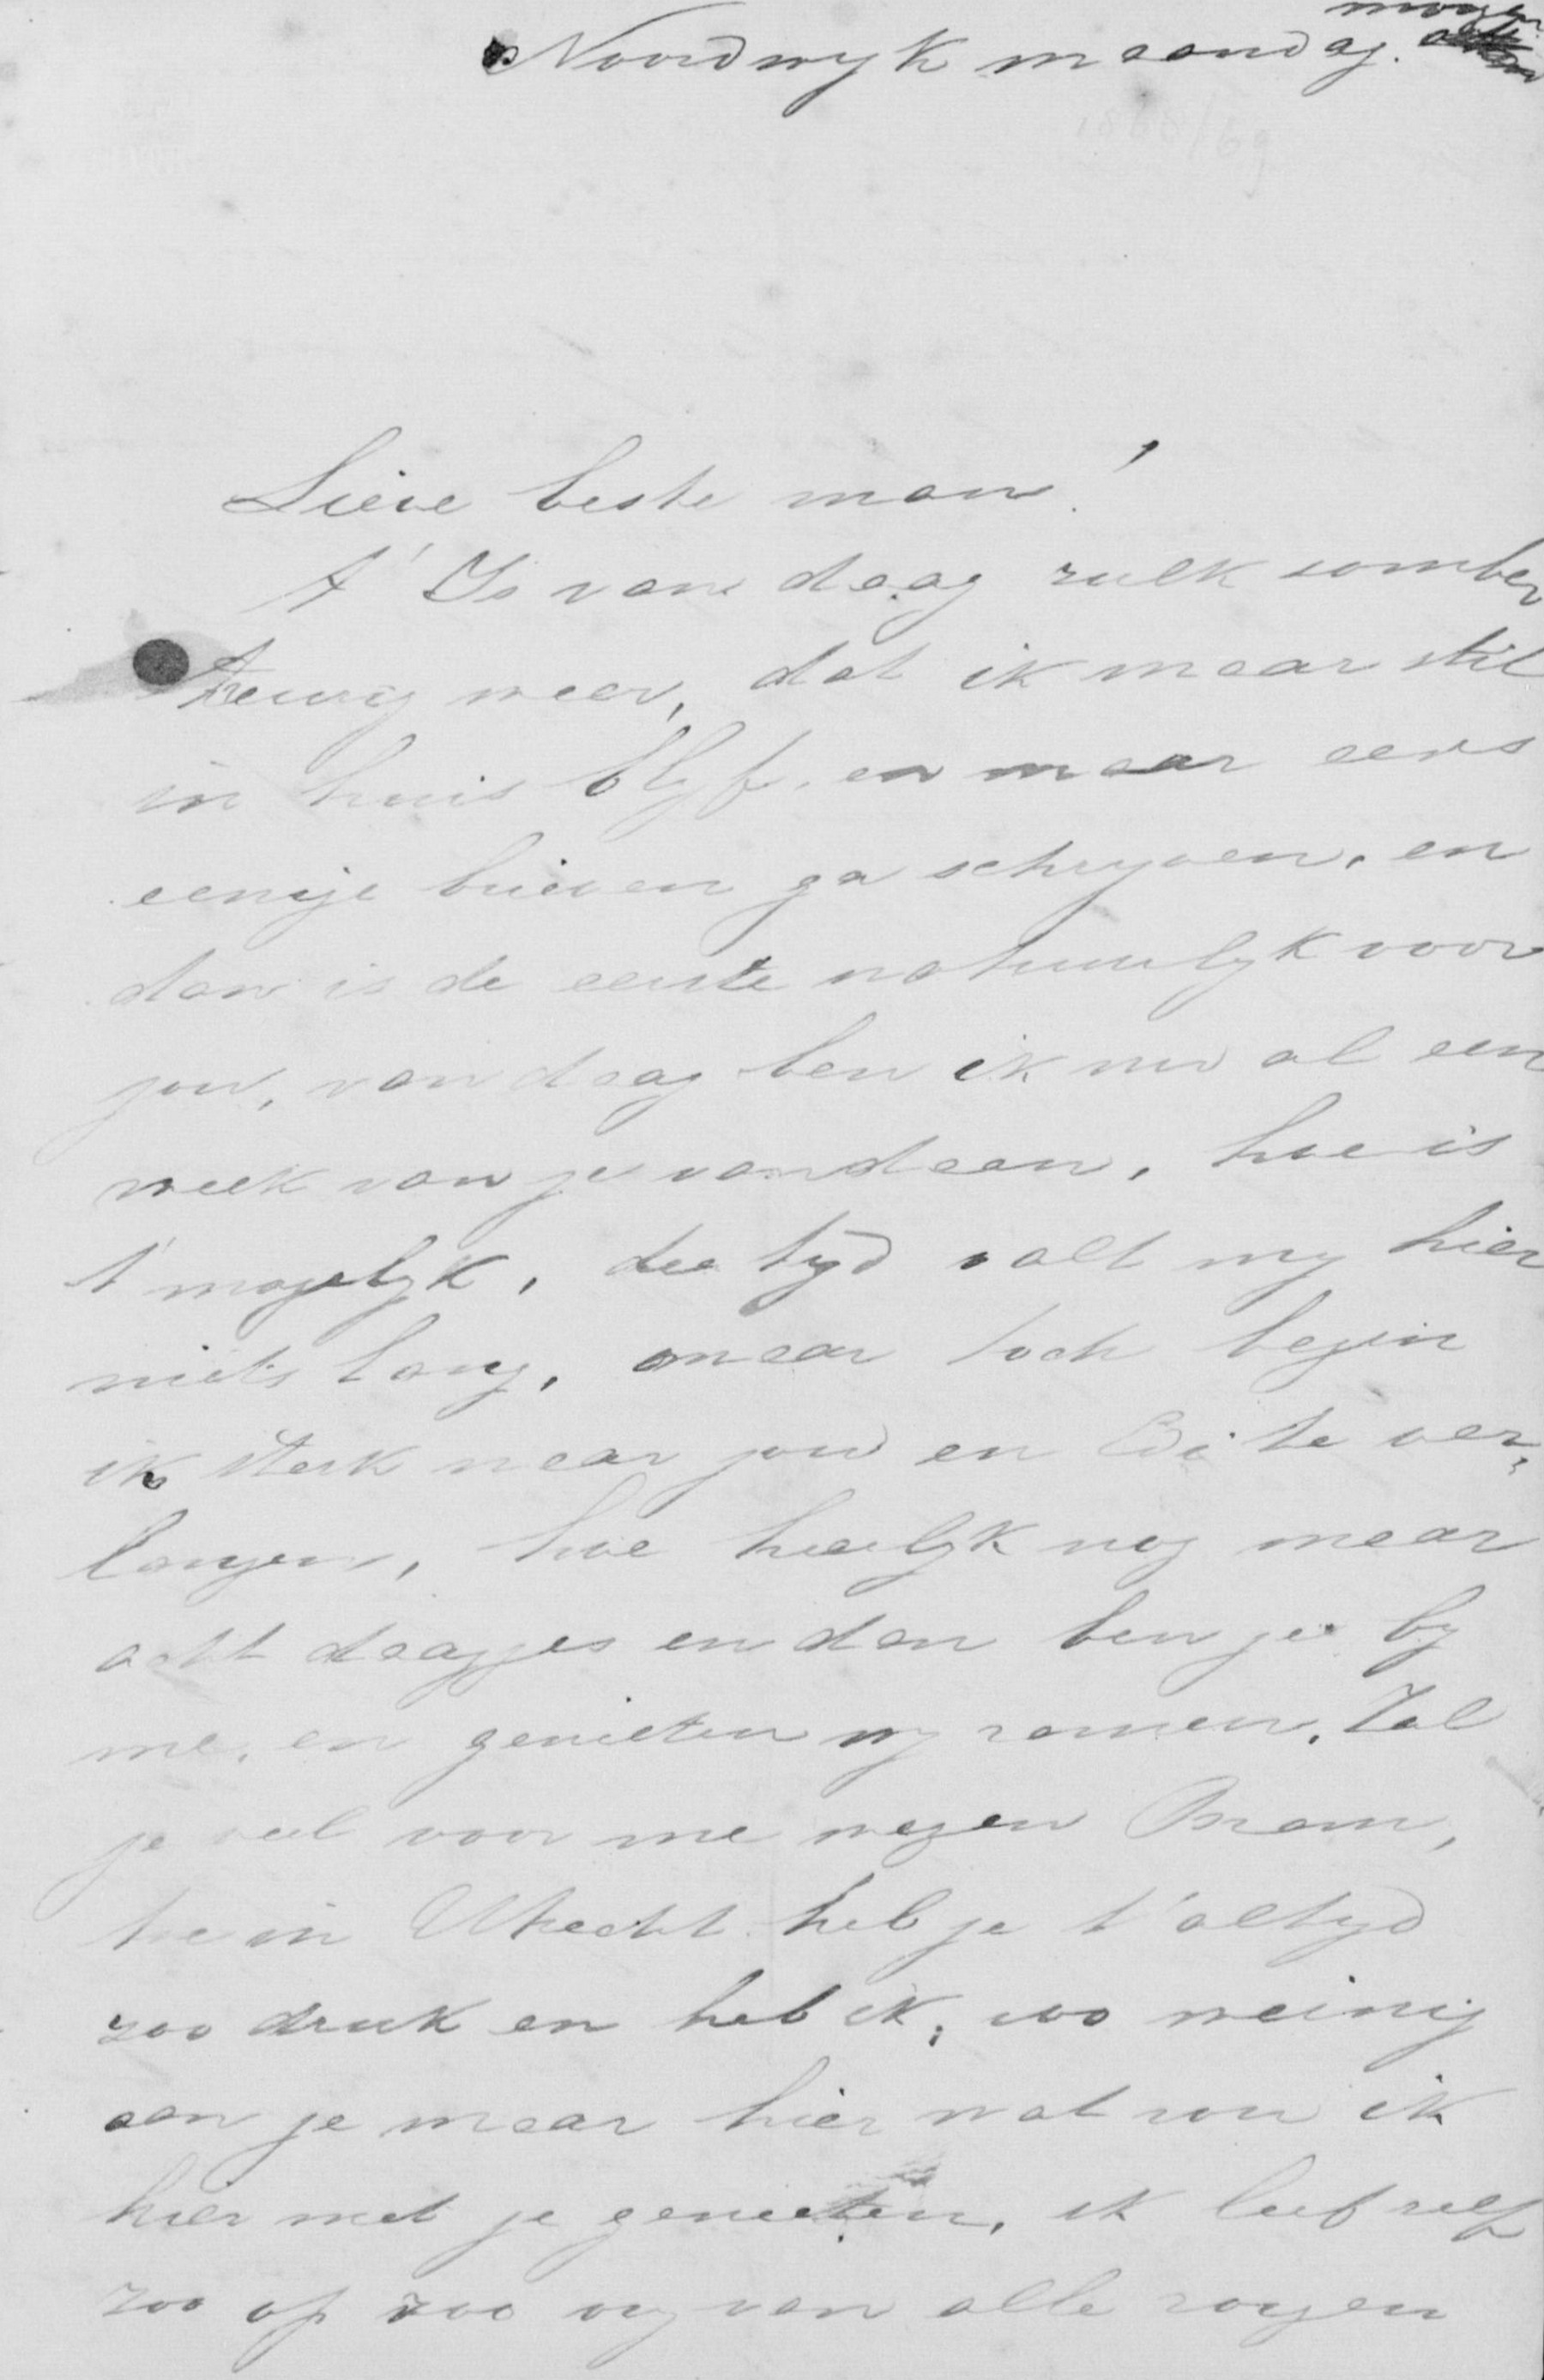 Noordwyk maandag. morgen
1868/69
Lieve beste man!
t' Is van daag zulk somber
treurig weer, dat ik maar stil
in huis blyf, en maar eens
eenige brieven ga schryven, en
dan is de eerste natuurlyk voor
jou, van daag ben ik nu al een
week van je vandaan, hoe is
t' mogelyk, die tyd valt my hier
niets lang, maar toch begin
ik sterk naar jou en Edi te ver,
langen, hoe heerlyk nog maar
acht daagjes en dan ben je by
me, en genieten wy samen. Zal
je veel voor me wezen Bram,
he in Utrecht heb je t' altyd
zoo druk en heb ik, zoo weinig
aan je maar hier wat zou ik
hier met je genieten, ik leef zelf
zoo op zoo vry van alle zorgen